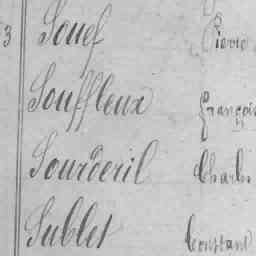 3 Souef Pierre
Souffleux François
Sourderil Charles
Sublet Constant